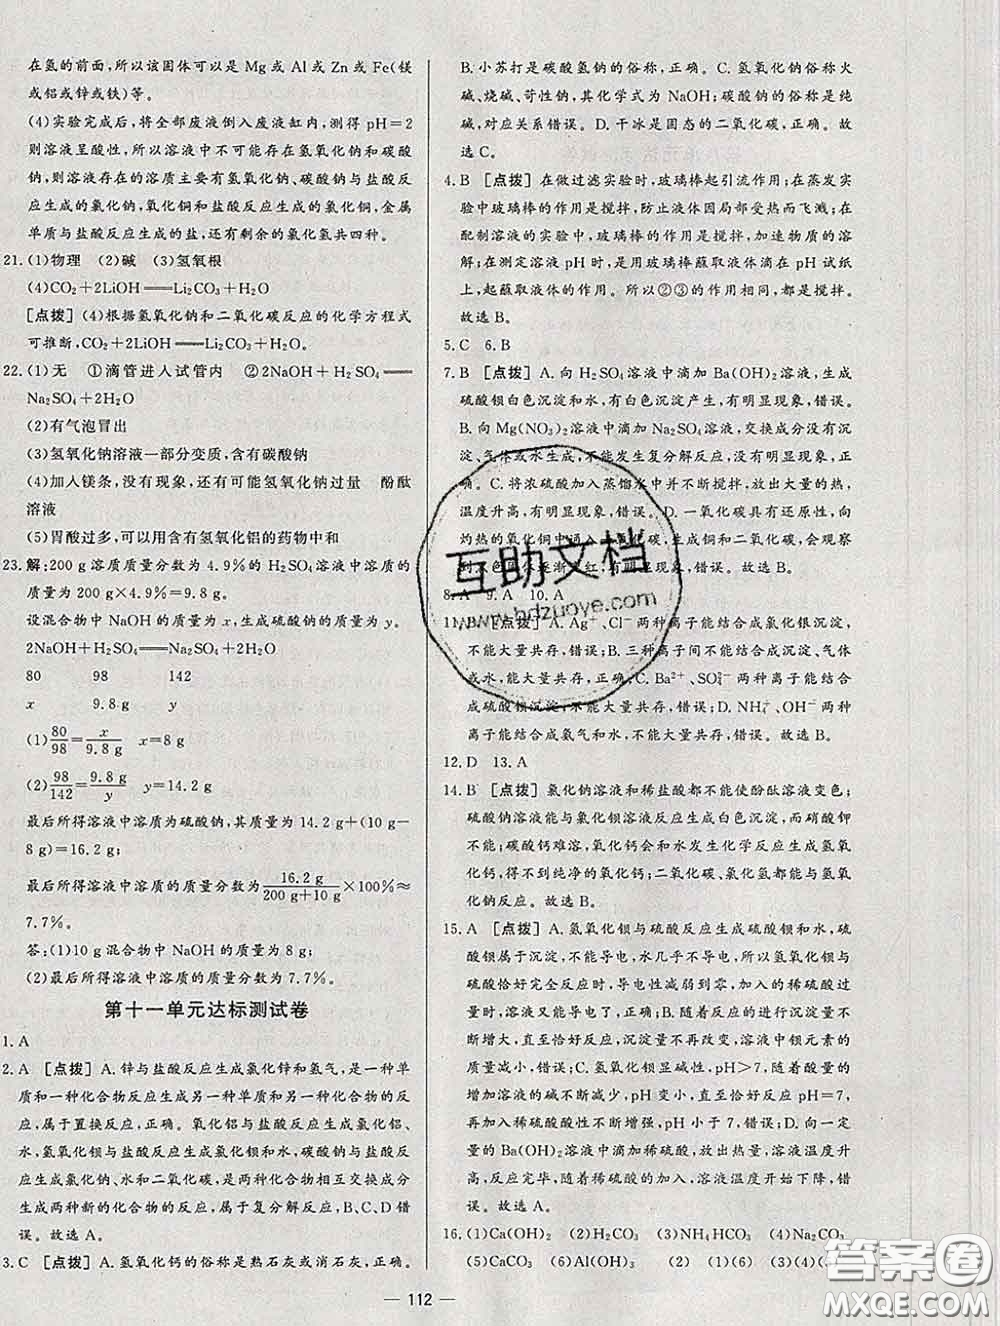 在氢的前面,所以该固体可以是 Mg 或 Al 或 Zn 或 Fe(镁
或铝或锌或铁)等。
(4)实验完成后,将全部废液倒入废液缸内,测得 pH=2
则溶液呈酸性,所以溶液中不可能存在氢氧化钠和碳酸
钠,则溶液存在的溶质主要有氢氧化钠、碳酸钠与盐酸反
应生成的氯化钠,氧化铜和盐酸反应生成的氯化铜,金属
单质与盐酸反应生成的盐,还有剩余的氯化氢共四种。
21.(1)物理 (2)碱 (3)氢氧根
(4)CO₂+2LiOH══Li₂CO₃+H₂O
[点拨] (4)根据氢氧化钠和二氧化碳反应的化学方程式
可推断,CO₂+2LiOH══Li₂CO₃+H₂O。
22.(1)无 ①滴管进入试管内 ②2NaOH+H₂SO₄══
Na₂SO₄+2H₂O
(2)有气泡冒出
(3)氢氧化钠溶液一部分变质,含有碳酸钠
(4)加入镁条,没有现象,还有可能氢氧化钠过量 酚酞
溶液
(5)胃酸过多,可以用含有氢氧化铝的药物中和
23.解:200 g 溶质质量分数为 4.9%的 H₂SO₄ 溶液中溶质的
质量为 200 g×4.9%=9.8 g。
设混合物中 NaOH 的质量为 x,生成硫酸钠的质量为 y。
2NaOH+H₂SO₄══Na₂SO₄+2H₂O
80 98 142
x 9.8 g y
(1)80/98=x/9.8 g x=8 g
(2)98/142=9.8 g/y y=14.2 g
最后所得溶液中溶质为硫酸钠,其质量为 14.2 g+(10 g-
8 g)=16.2 g;
最后所得溶液中溶质的质量分数为16.2 g/200 g+10 g×100%≈
7.7%。
答:(1)10 g 混合物中 NaOH 的质量为 8 g;
(2)最后所得溶液中溶质的质量分数为 7.7%。
第十一单元达标测试卷
1.A
2.A [点拨] A.锌与盐酸反应生成氯化锌和氢气,是一种单
质和一种化合物反应生成另一种单质和另一种化合物的反
应,属于置换反应,正确。氧化铝与盐酸反应生成氯化铝、
水,氢氧化钡与盐酸反应生成氯化钡、水,碳酸钠与盐酸反
应生成氯化钠、水和二氧化碳,是两种化合物相互交换成分
生成两种新的化合物的反应,属于复分解反应,B、C、D 错
误。故选 A。
3.C [点拨] A.氢氧化钙的俗称是熟石灰或消石灰,正确。
B.小苏打是碳酸氢钠的俗称,正确。C.氢氧化钠俗称火
碱、烧碱、苛性钠,其化学式为 NaOH;碳酸钠的俗称是纯
碱,对应关系错误。D.干冰是固态的二氧化碳,正确。故
选 C。
4.B [点拨] 在做过滤实验时,玻璃棒起引流作用;在蒸发实
验中玻璃棒的作用是搅拌,防止液体因局部受热而飞溅;在
配制溶液的实验中,玻璃棒的作用是搅拌,加速物质的溶
解;在测定溶液 pH 时,是用玻璃棒蘸取液体滴在 pH 试纸
上,起蘸取液体的作用。所以②③的作用相同,都是搅拌。
故选 B。
5.C 6.B
7.B [点拨] A.向 H₂SO₄ 溶液中滴加 Ba(OH)₂ 溶液,生成
硫酸钡白色沉淀和水,有白色沉淀产生,有明显现象,错误。
B.向 Mg(NO₃)₂ 溶液中滴加 Na₂SO₄ 溶液,交换成分没有沉
淀、气体或水生成,不能发生复分解反应,无明显现象,正
确。C.将浓硫酸加入蒸馏水中并不断搅拌,放出大量的热,
温度升高,有明显现象,错误。D.一氧化碳具有还原性,向
灼热的氧化铜中通入一氧化碳,会发生反应,会观察
到黑色固体逐渐变红,有明显现象,错误。故选 B。
8.A 9.A 10.A
11.B [点拨] A.Ag⁺、Cl⁻ 两种离子能结合成氯化银沉淀,
不能大量共存,错误;B.三种离子间不能结合成沉淀、气体
或水,能大量共存,正确;C.Ba²⁺、SO₄²⁻ 两种离子能结合
成硫酸钡沉淀,不能大量共存,错误;D.NH₄⁺、OH⁻ 两种
离子能结合成氨气和水,不能大量共存,错误。故选 B。
12.D 13.A
14.B [点拨] 氯化钠溶液和稀盐酸都不能使酚酞溶液变色;
硫酸钠溶液能与氯化钡溶液反应生成白色沉淀,而硝酸钾
不能;碳酸钙难溶,氧化钙会和水发生化学反应生成氢氧
化钙,得不到纯净的氧化钙;二氧化碳、氯化氢都能与氢氧
化钠反应。故选 B。
15.A [点拨] A.氢氧化钡与硫酸反应生成硫酸钡和水,硫酸
钡属于沉淀,不能导电,水几乎不导电,所以氢氧化钡与硫酸
恰好完全反应时,溶液的导电性减弱到零,加入的稀硫酸过量
时,溶液又能导电了,正确。B.随着反应的进行沉淀量不
断增大,直至恰好反应,沉淀质量不再改变,溶液中钡元素的
质量减小,错误;C.氢氧化钡显碱性,pH>7,随着硫酸的量
增加,溶液的碱不断减少,pH 变小,直至恰好反应 pH=7,再
加入稀硫酸酸性不断增强,pH 小于 7,错误;D.向一定量
的 Ba(OH)₂ 溶液中逐滴加入稀硫酸,反应放热,溶液温度升
高,反应完毕,随着稀硫酸的加入,溶液温度开始下降,错
误。故选 A。
16.(1)Ca(OH)₂ (2)H₂CO₃ (3)NH₄HCO₃ (4)Na₂CO₃
(5)CaCO₃ (6)Al(OH)₃
112
互助文档
www.hdzuoye.com
答案圈
MXQE.COM